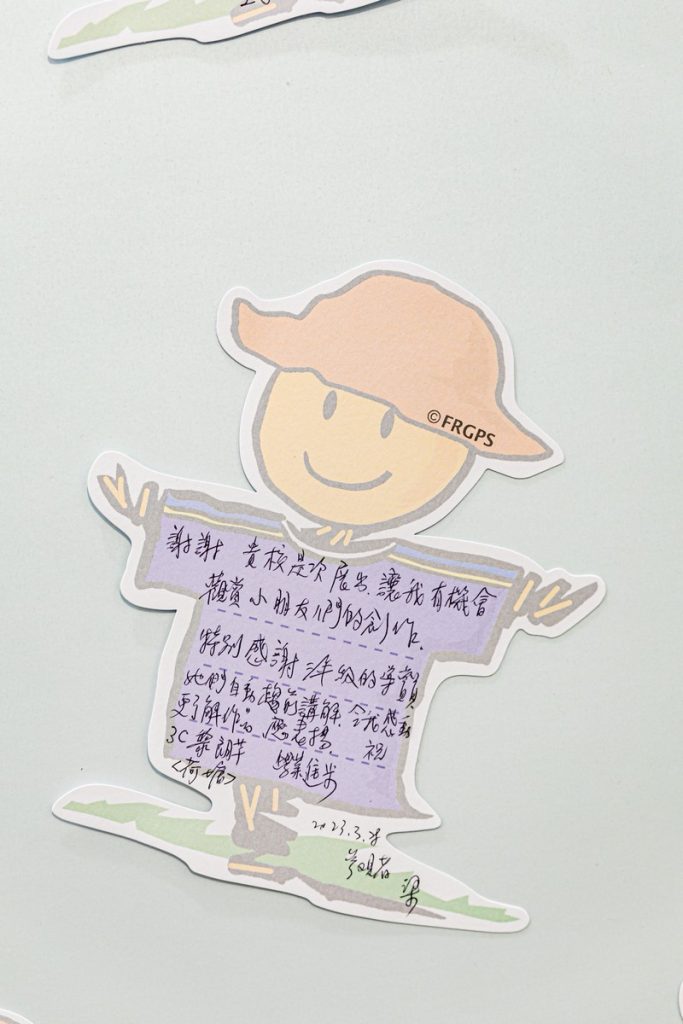 ©FRGPS
謝謝 貴校是次展出,讓我有機會
觀賞小朋友們的創作.
特別感謝 三年級的導賞員
她們自動趨前講解,令我感動
更了解作品 應表揚. 祝
3C 黎 學業進步
<荷塘>
2023.3.28
參觀者
梁